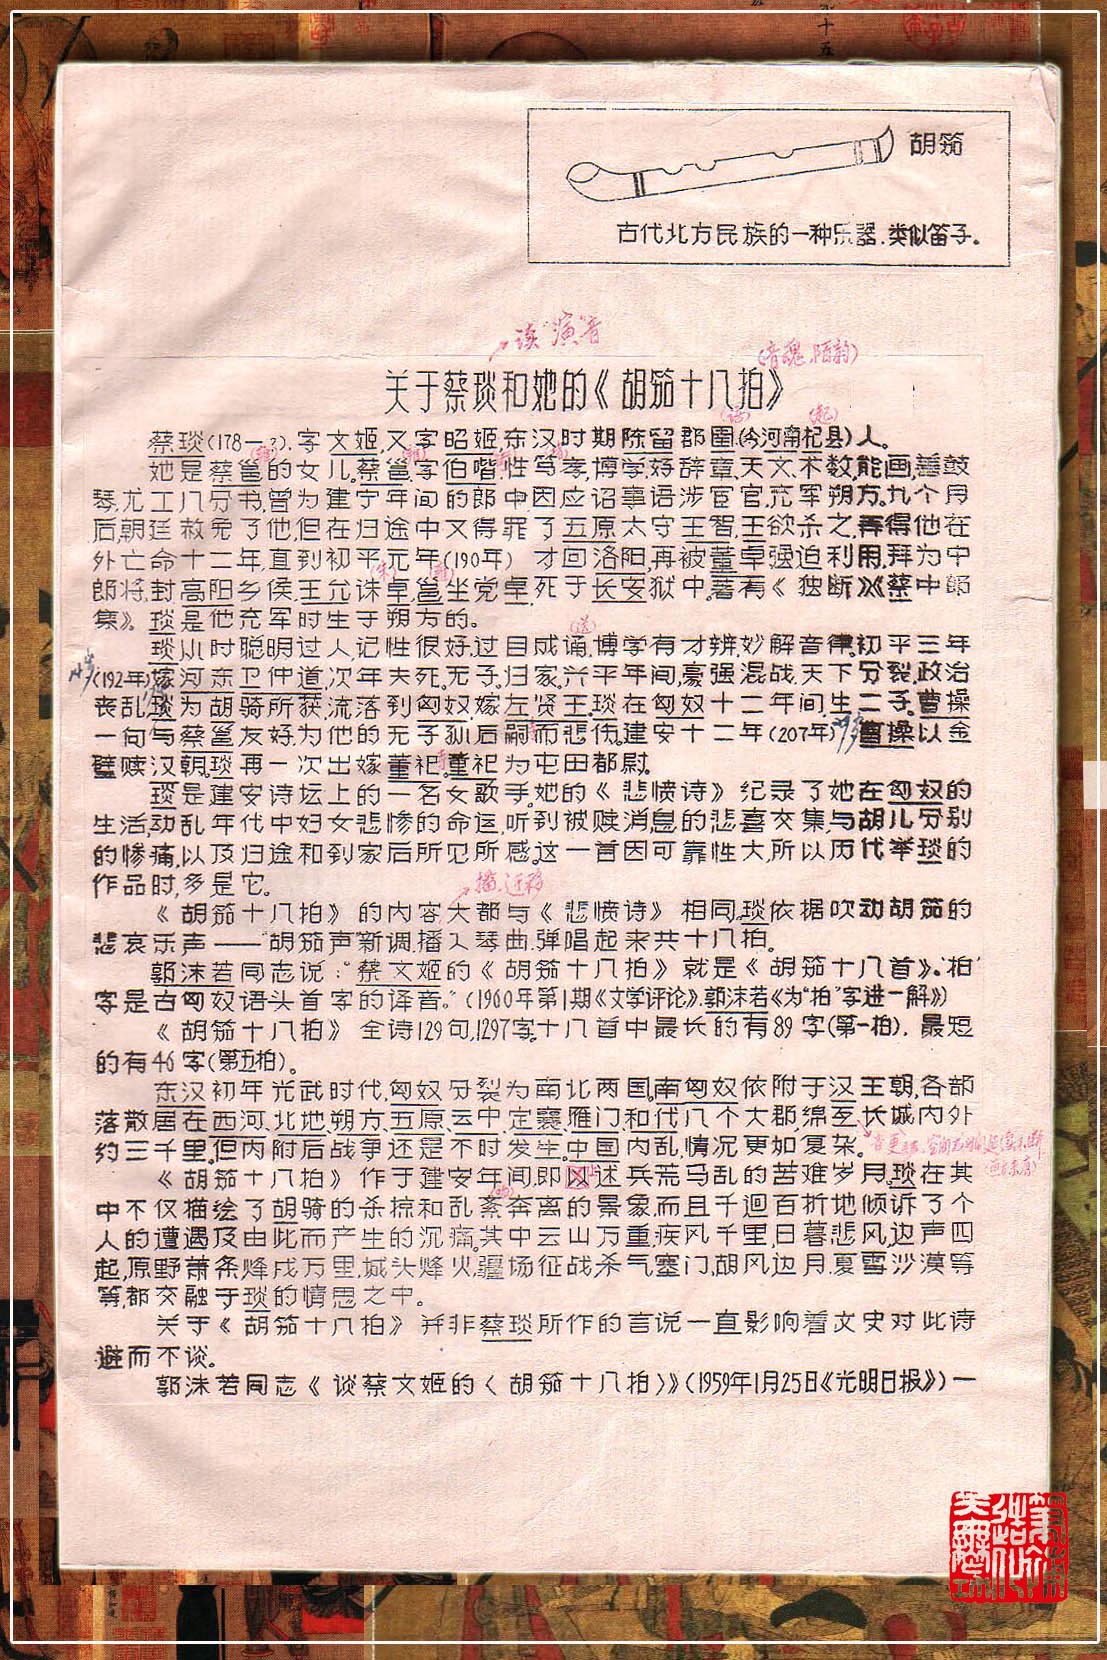 胡笳
古代北方民族的一种乐器.类似笛子。
读"演"音
关于蔡琰和她的《胡笳十八拍》
蔡琰(178—?).字文姬,又字昭姬,东汉时期陈留郡圉(今河南杞县)人。
她是蔡邕的女儿.蔡邕.字伯喈.性笃孝,博学.好辞章.天文.术数,能画,善鼓
琴,尤工八分书,曾为建宁年间的郎中.因应诏事语涉宦官,充军朔方.九个月
后,朝廷赦免了他,但在归途中又得罪了五原太守王智.王欲杀之.再得他在
外亡命十二年,直到初平元年(190年) 才回洛阳,再被董卓强迫利用,拜为中
郎将,封高阳乡侯.王允诛卓.邕坐党卓.死于长安狱中.著有《独断》《蔡中郎
集》.琰是他充军时生于朔方的。
琰从小时聪明过人,记性很好.过目成诵,博学有才辨,妙解音律.初平三年
(192年)嫁河东卫仲道,次年夫死.无子.归家.兴平年间,豪强混战.天下分裂.政治
丧乱.琰为胡骑所获,流落到匈奴.嫁左贤王.琰在匈奴十二年间生二子.曹操
一向与蔡邕友好.为他的无子孙后嗣而悲伤.建安十二年(207年)曹操以金
璧赎汉朝.琰再一次出嫁董祀.董祀为屯田都尉.
琰是建安诗坛上的一名女歌手.她的《悲愤诗》纪录了她在匈奴的
生活,动乱年代中妇女悲惨的命运,听到被赎消息的悲喜交集,与胡儿分别
的惨痛,以及归途和到家后所见所感.这一首因可靠性大,所以历代举琰的
作品时,多是它.
播.迁移
《胡笳十八拍》的内容大都与《悲愤诗》相同.琰依据吹动胡笳的
悲哀乐声——"胡笳声"新调.播入琴曲.弹唱起来共十八拍。
郭沫若同志说:"蔡文姬的《胡笳十八拍》就是《胡笳十八首》.'拍'
字是古匈奴语头首字的译音."(1960年第1期《文学评论》.郭沫若《为"拍"字进一解》)
《胡笳十八拍》全诗129句,1297字.十八首中最长的有89字(第一拍).最短
的有46字(第五拍)。
东汉初年光武时代,匈奴分裂为南北两国.南匈奴依附于汉王朝,各部
落散居在西河.北地.朔方.五原.云中.定襄.雁门和代八个大郡,绵亙长城内外
约三千里.但内附后战争还是不时发生.中国内乱,情况更如复杂。
《胡笳十八拍》作于建安年间,即述兵荒马乱的苦难岁月.琰在其
中不仅描绘了胡骑的杀掠和乱紊奔离的景象,而且千迴百折地倾诉了个
人的遭遇及由此而产生的沉痛.其中云山万重,疾风千里,日暮悲风,边声四
起,原野萧条,烽戍万里,城头烽火,疆场征战,杀气塞门,胡风边月.夏雪沙漠等
等,都交融于琰的情思之中。
关于《胡笳十八拍》并非蔡琰所作的言说一直影响着文史对此诗
避而不谈。
郭沫若同志《谈蔡文姬的〈胡笳十八拍〉》(1959年1月25日《光明日报》)一